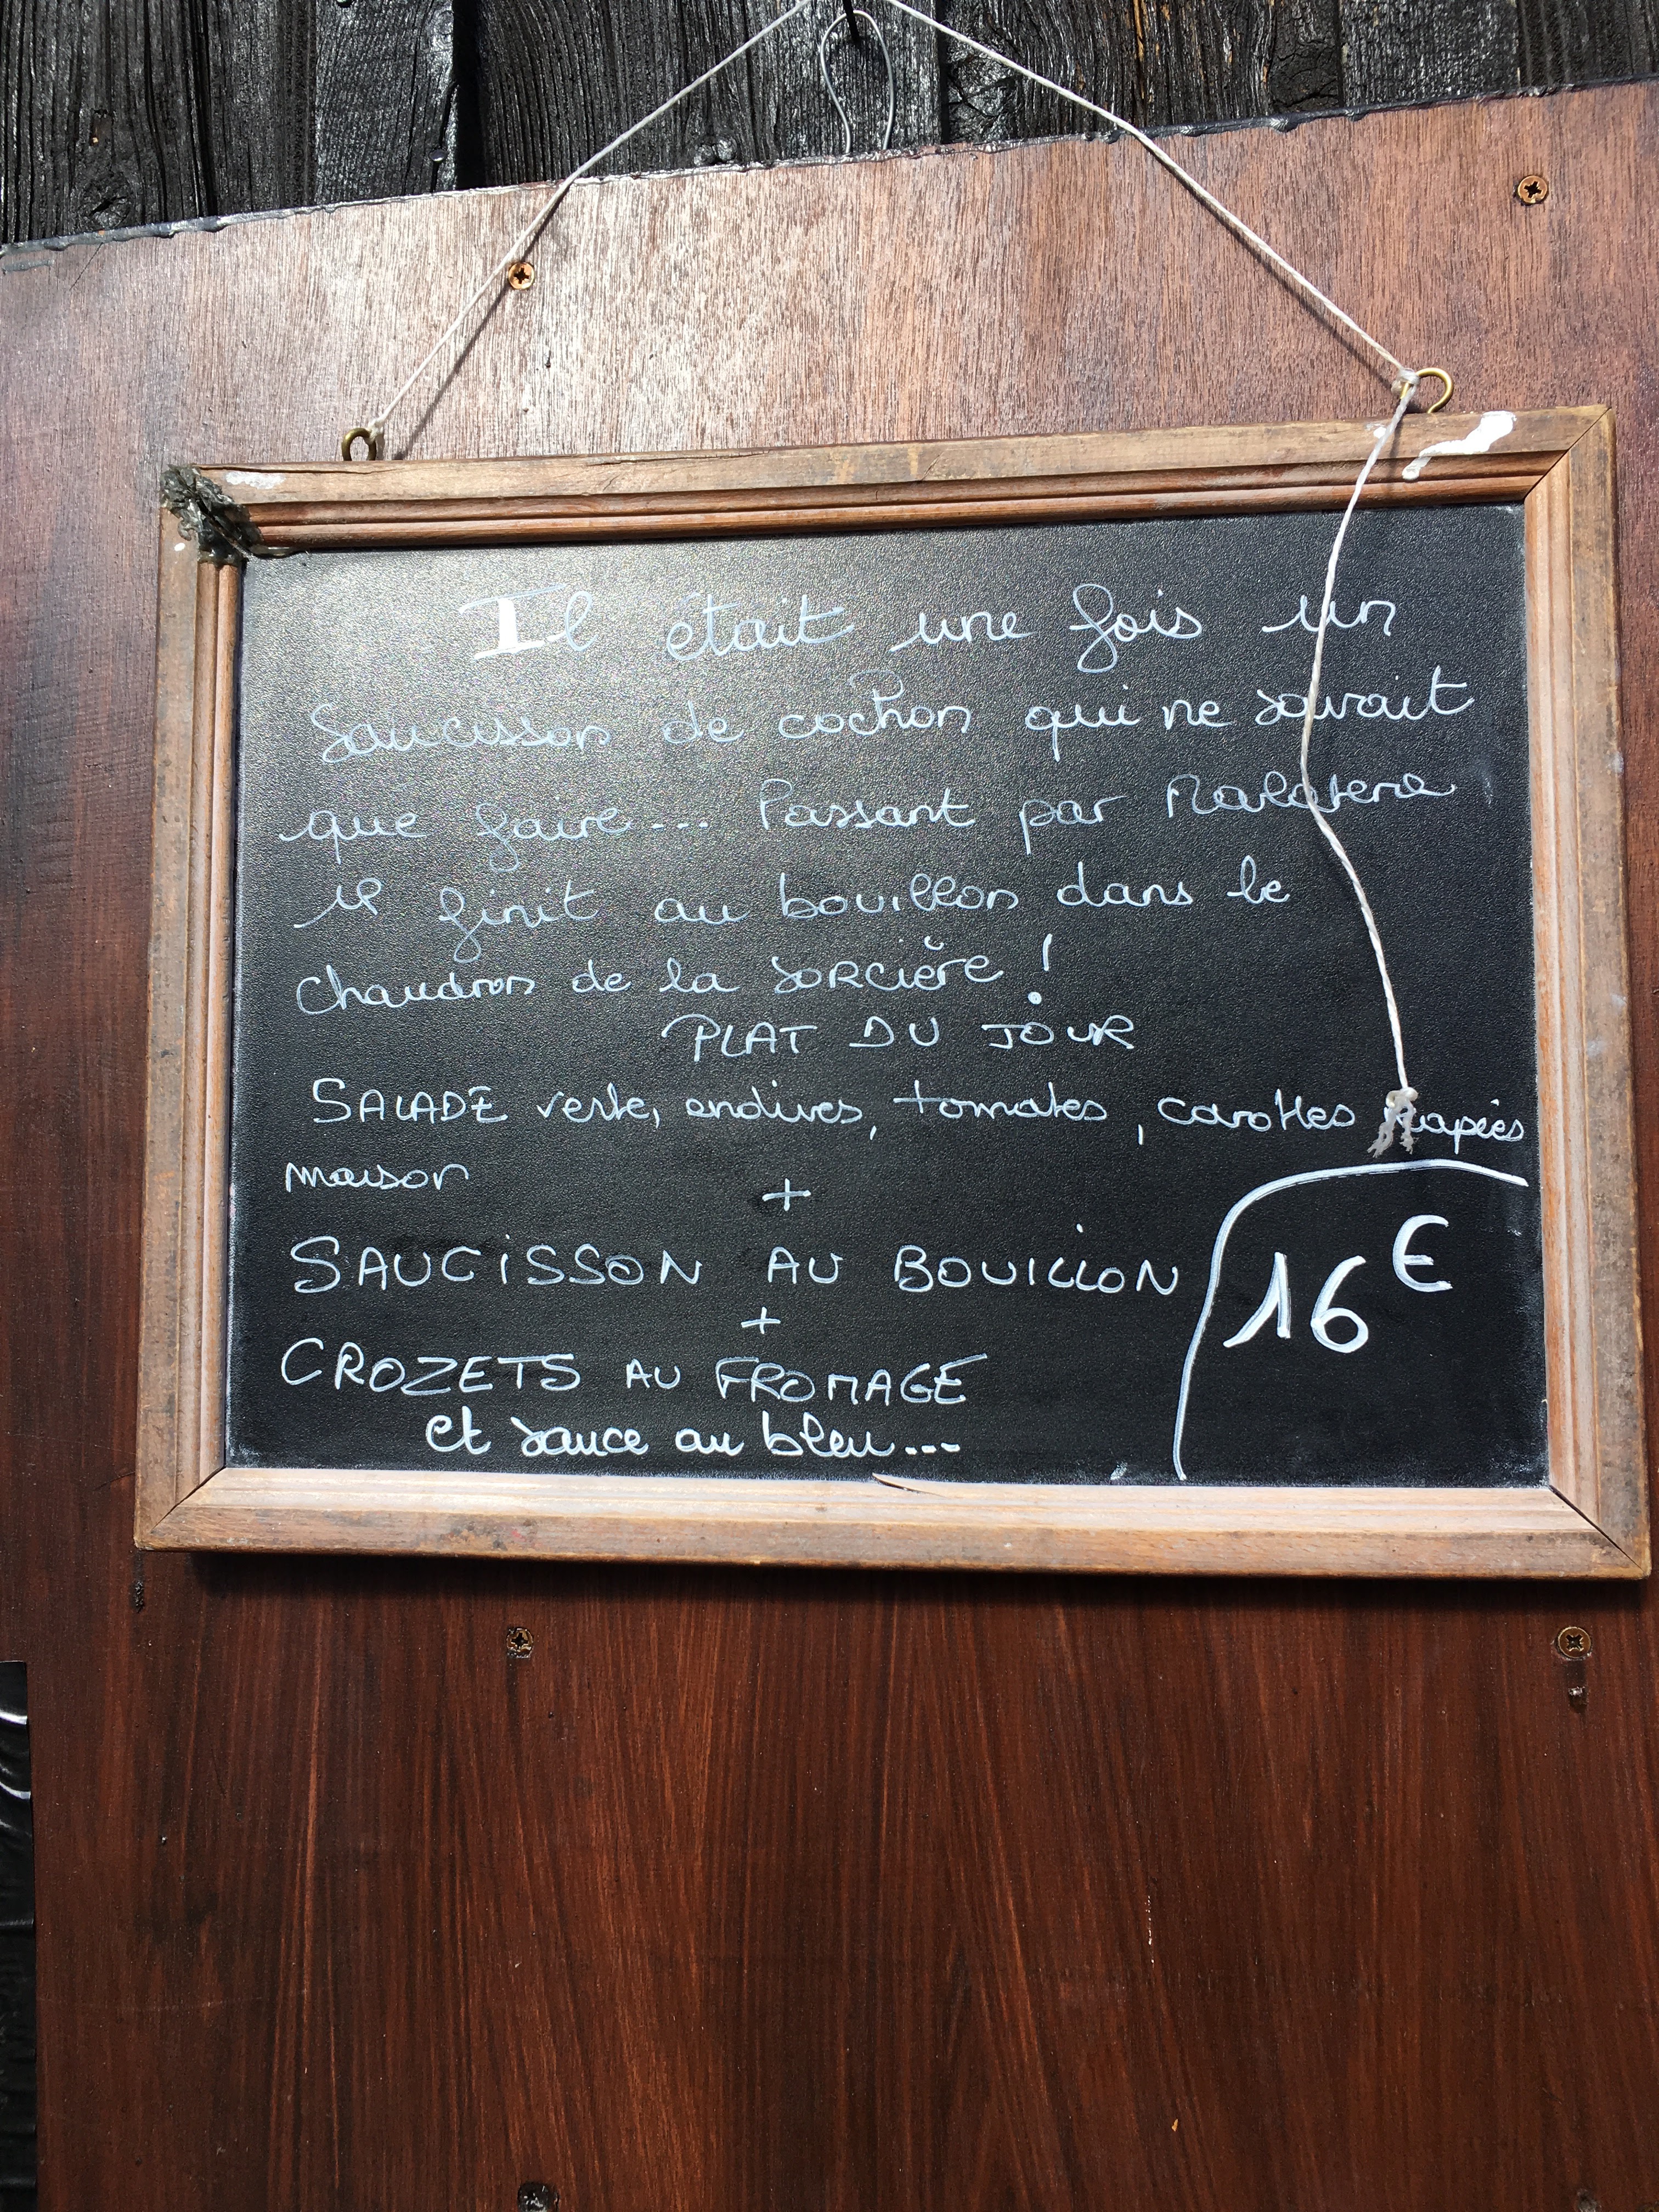 Il était une fois un
saucisson de cochon qui ne savait
que faire... Passant par
il finit au bouillon dans le
chaudron de la sorcière !
PLAT DU JOUR
SALADE verte, endives, tomates, carottes rapées
maison
+
SAUCISSON AU BOUILLON
+
CROZETS AU FROMAGE
et sauce au bleu...
16 €